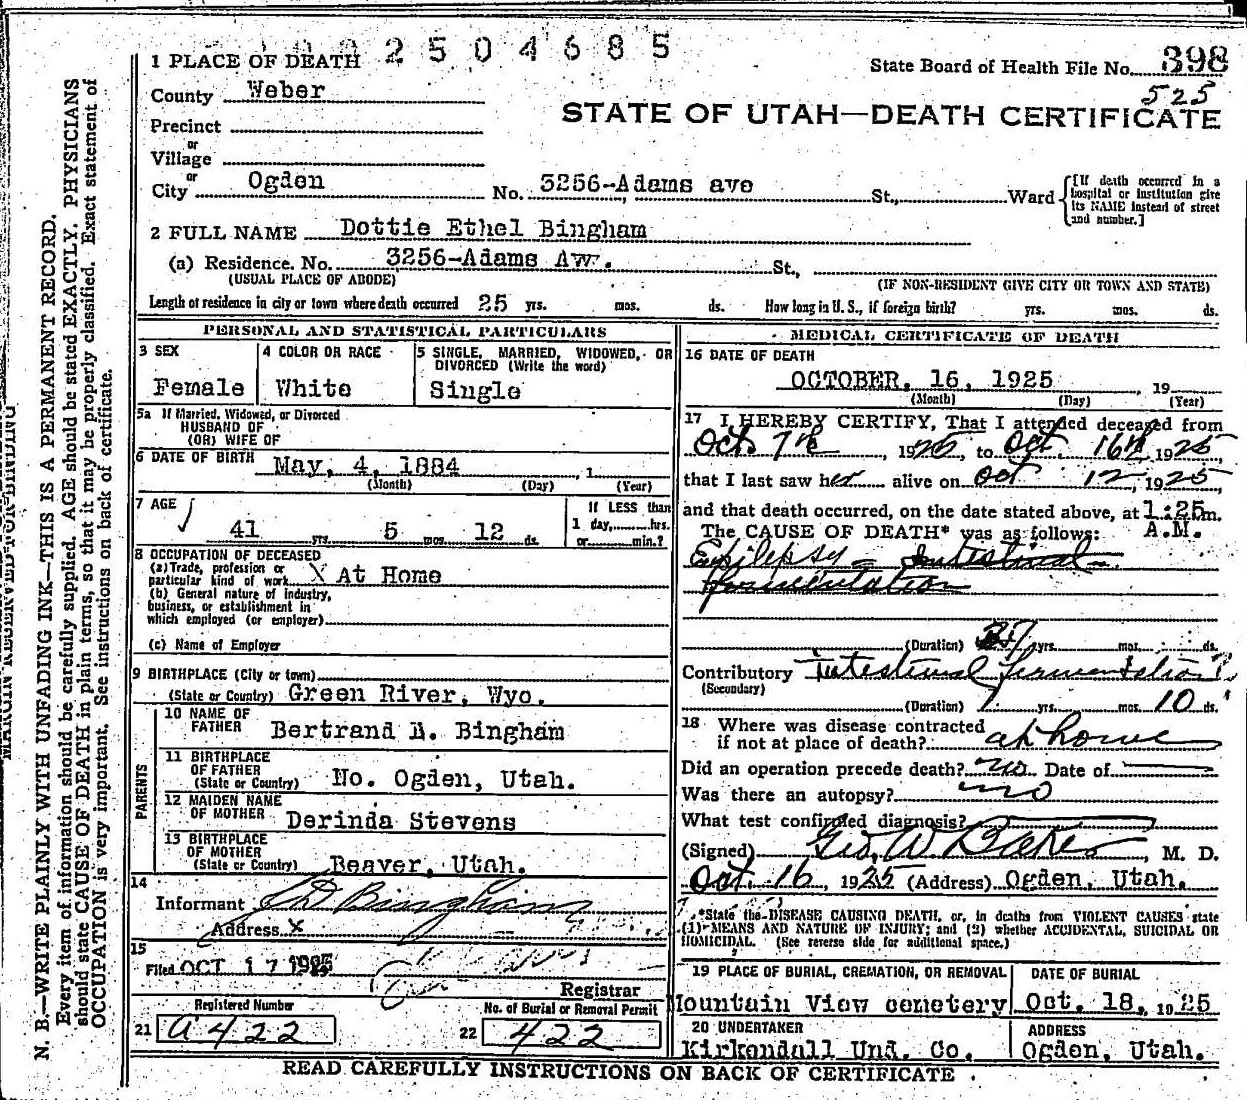 2504685
1 PLACE OF DEATH
State Board of Health File No. 398
525
County Weber
STATE OF UTAH—DEATH CERTIFICATE
Precinct
or
Village
or
City Ogden No. 3256-Adams ave St., Ward
[If death occurred in a hospital or institution give its NAME instead of street and number.]
2 FULL NAME Dottie Ethel Bingham
(a) Residence. No. 3256-Adams Av. St.,
(USUAL PLACE OF ABODE) (IF NON-RESIDENT GIVE CITY OR TOWN AND STATE)
Length of residence in city or town where death occurred 25 yrs. mos. ds. How long in U. S., if foreign birth? yrs. mos. ds.
PERSONAL AND STATISTICAL PARTICULARS
3 SEX
Female
4 COLOR OR RACE
White
5 SINGLE, MARRIED, WIDOWED, OR DIVORCED (Write the word)
Single
5a If Married, Widowed, or Divorced
HUSBAND OF
(OR) WIFE OF
6 DATE OF BIRTH May, 4, 1884, 1
(Month) (Day) (Year)
7 AGE
41 yrs. 5 mos. 12 ds.
If LESS than
1 day, hrs.
or min.?
8 OCCUPATION OF DECEASED
(a) Trade, profession or
particular kind of work X At Home
(b) General nature of industry,
business, or establishment in
which employed (or employer)
(c) Name of Employer
9 BIRTHPLACE (City or town)
(State or Country) Green River, Wyo.
PARENTS
10 NAME OF
FATHER Bertrand D. Bingham
11 BIRTHPLACE
OF FATHER
(State or Country) No. Ogden, Utah.
12 MAIDEN NAME
OF MOTHER Derinda Stevens
13 BIRTHPLACE
OF MOTHER
(State or Country) Beaver, Utah.
14
Informant Bingham
Address X
15
Filed OCT 17 1925
Registrar
Registered Number
21 a 422
No. of Burial or Removal Permit
22 422
MEDICAL CERTIFICATE OF DEATH
16 DATE OF DEATH
OCTOBER, 16, 1925 19
(Month) (Day) (Year)
17 I HEREBY CERTIFY, That I attended deceased from
Oct. 7th, 1925, to Oct 16th, 1925,
that I last saw her alive on Oct 12, 1925,
and that death occurred, on the date stated above, at 1:25 m.
A.M.
The CAUSE OF DEATH* was as follows:
Epilepsy - Intestinal
Fermentation
(Duration) yrs. mos. ds.
Contributory Intestinal fermentation
(Secondary)
(Duration) yrs. mos. 10 ds.
18 Where was disease contracted
if not at place of death? at home
Did an operation precede death? no Date of
Was there an autopsy? no
What test confirmed diagnosis?
(Signed) Geo. W. Baker, M. D.
Oct. 16, 1925 (Address) Ogden, Utah.
*State the DISEASE CAUSING DEATH, or, in deaths from VIOLENT CAUSES state
(1) MEANS AND NATURE OF INJURY; and (2) whether ACCIDENTAL, SUICIDAL OR
HOMICIDAL. (See reverse side for additional space.)
19 PLACE OF BURIAL, CREMATION, OR REMOVAL
Mountain View cemetery
DATE OF BURIAL
Oct. 18, 1925
20 UNDERTAKER
Kirkendall Und. Co.
ADDRESS
Ogden, Utah.
READ CAREFULLY INSTRUCTIONS ON BACK OF CERTIFICATE
N. B.—WRITE PLAINLY WITH UNFADING INK—THIS IS A PERMANENT RECORD.
Every item of information should be carefully supplied. AGE should be stated EXACTLY. PHYSICIANS
should state CAUSE OF DEATH in plain terms, so that it may be properly classified. Exact statement of
OCCUPATION is very important. See instructions on back of certificate.